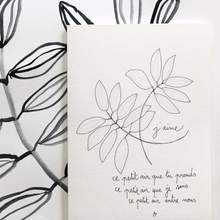 j'aime
ce petit air que tu prends
ce petit air que je sens
ce petit air entre nous